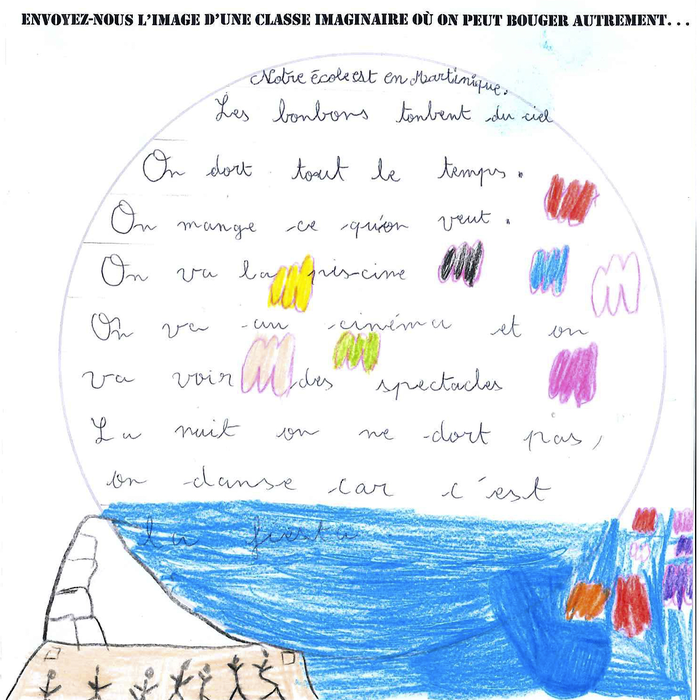 ENVOYEZ-NOUS L'IMAGE D'UNE CLASSE IMAGINAIRE OÙ ON PEUT BOUGER AUTREMENT...
Notre école est en Martinique.
Les bonbons tonbent du ciel
On dort tout le temps.
On mange ce qu'on veut.
On va la piscine
On va au cinéma et on
va voir des spectacles
La nuit on ne dort pas,
on danse car c'est
la fiesta